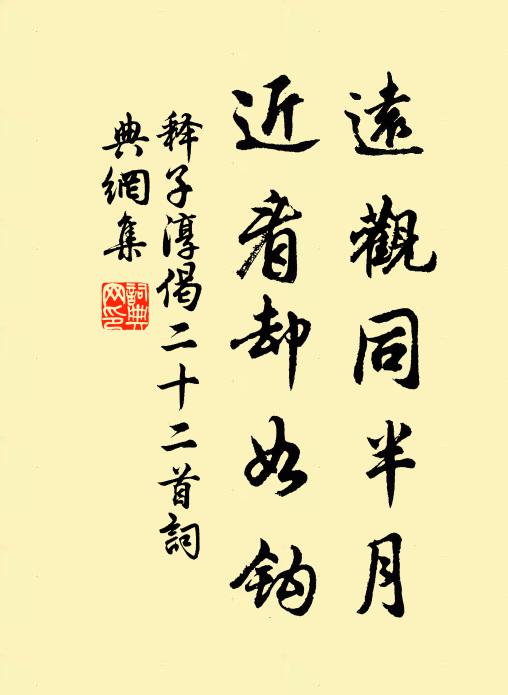 遠觀同半月
近看却如鈎
釋子淳偈二十二首詞
典網集
詞典
网印